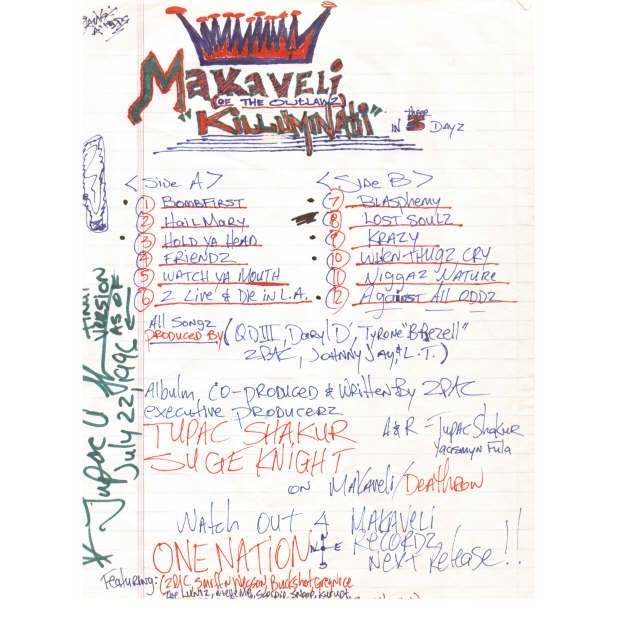 Makaveli
(OF THE OUTLAWZ)
"KILLUMINATI" IN three Dayz
<Side A>
1 BOMBFIRST
2 HAIL MARY
3 HOLD YA HEAD
4 FRIENDZ
5 WATCH YA MOUTH
6 2 Live & Die IN L.A.
<SIDE B>
7 BLASPHEMY
8 LOST SOULZ
9 KRAZY
10 WHEN THUGZ CRY
10 Niggaz Nature
12 Against All Oddz
All Songz
PRODUCED BY (QDIII, Darryl D, Tyrone
2PAC, Johnny Jay, & L.T.)
Albulm CO-PRODUCED & WRITTEN By 2PAC
executive PRODUCERZ
TUPAC SHAKUR
SUGE KNIGHT
A&R - Tupac Shakur
Yaasmyn Fula
ON Makaveli/Deathrow
Watch Out 4 MAKAVELI
RECORDZ
Next Release!!
ONE NATION
N W E S
Featuring: (2PAC, Smif N Wesson Buckshot Greg Nice
The Luniz, Scorpio, Snoop, Kurupt,
FINAL
VERSION
AS OF
July 22, 1996
* Tupac